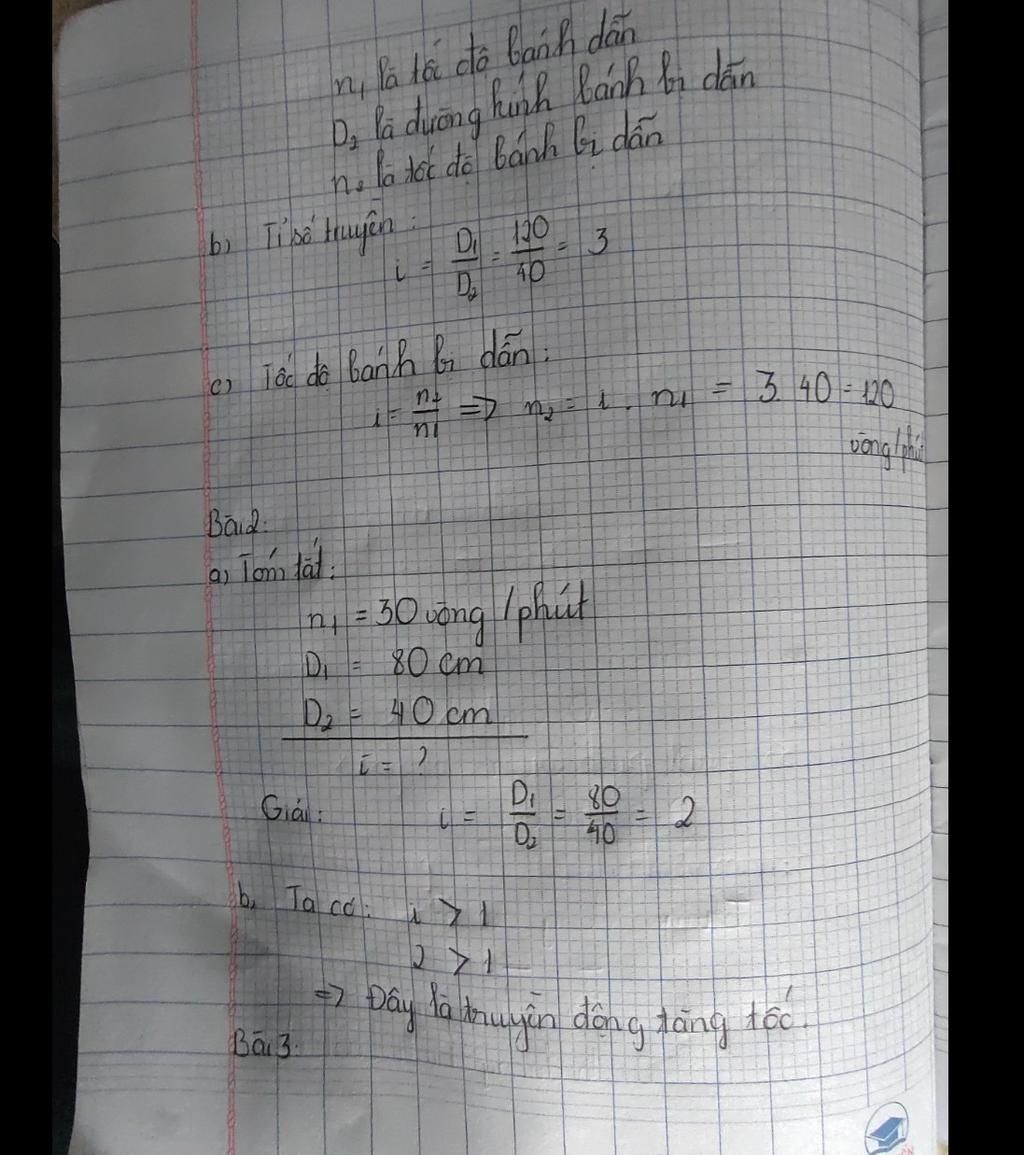 n₁ là tốc độ bánh dẫn
D₂ là đường kính bánh bị dẫn
n₂ là tốc độ bánh bị dẫn
b) Tỉ số truyền:
i = D₁/D₂ = 120/40 = 3
c) Tốc độ bánh bị dẫn:
i = n₂/n₁ => n₂ = i . n₁ = 3. 40 = 120
vòng/phút
Bài 2:
a) Tóm tắt:
n₁ = 30 vòng / phút
D₁ = 80 cm
D₂ = 40 cm
i = ?
Giải: i = D₁/D₂ = 80/40 = 2
b, Ta có: i > 1
2 > 1
=> Đây là truyền động tăng tốc.
Bài 3.